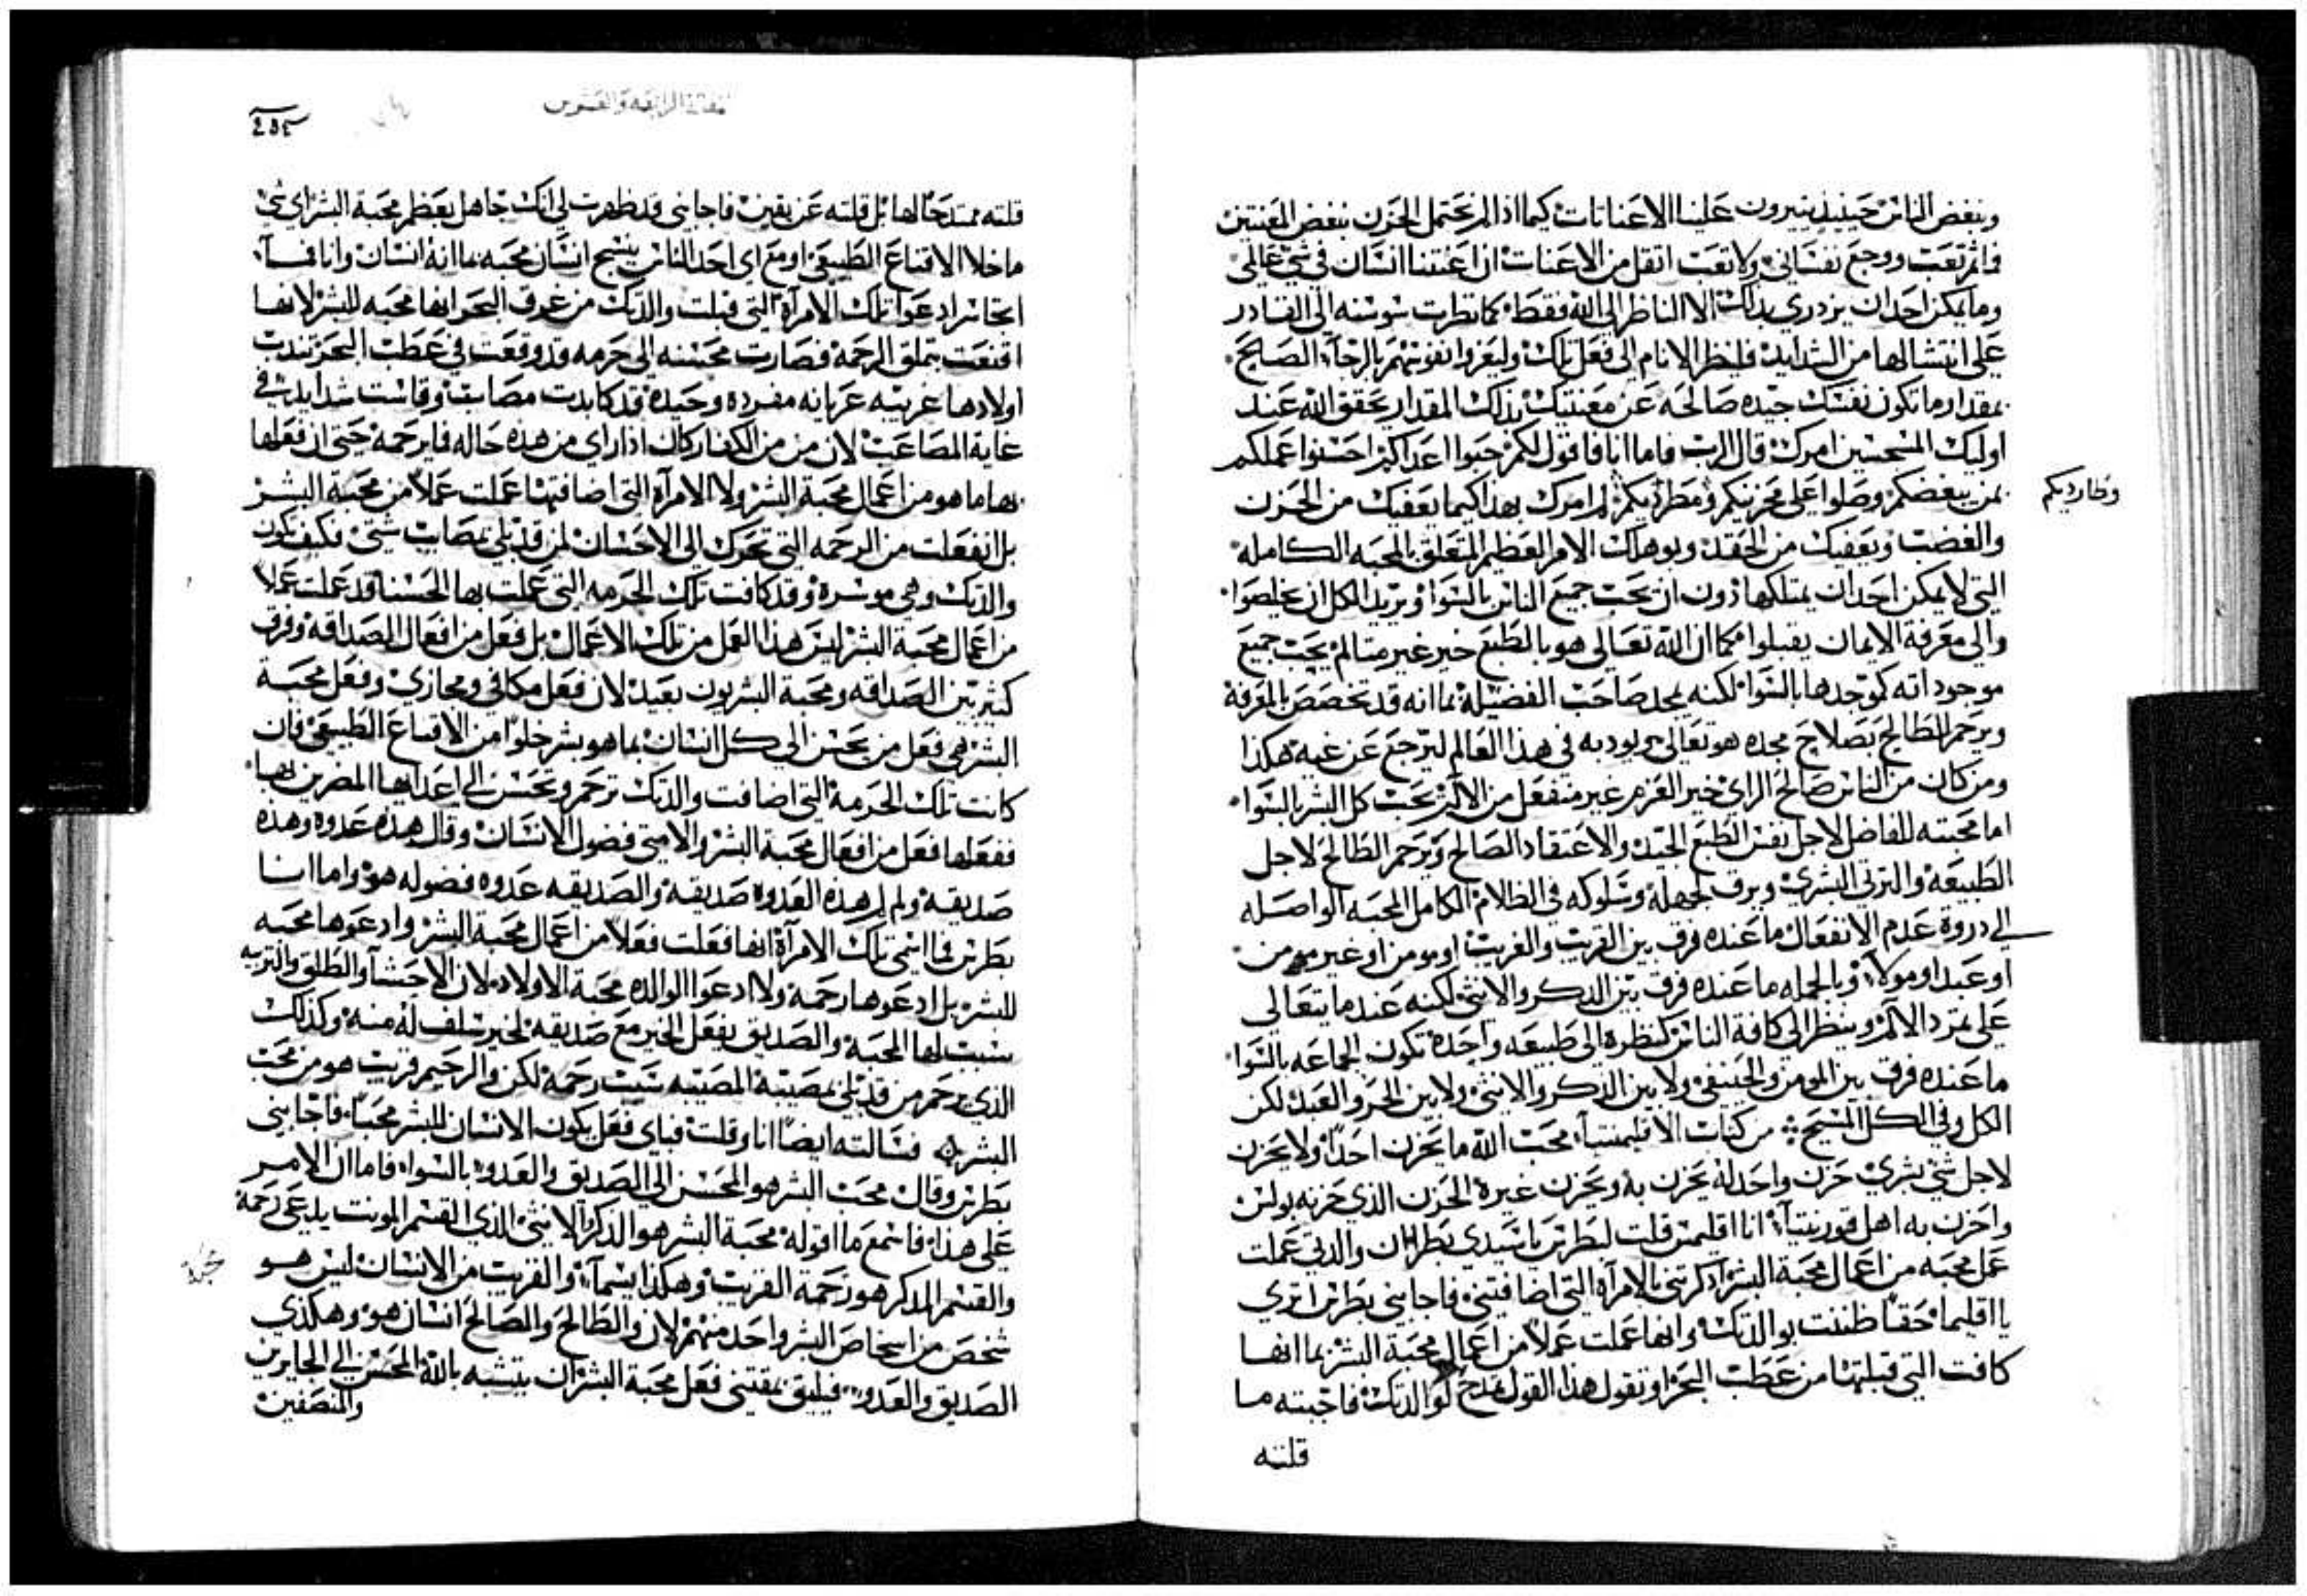 وببغض الناس حينيذ يثيرون علينا الاعنات كيما اذا لم نحتمل الحزن ببغض المعنتين
فاثم تعب ووجع نفساني ولا تعب اثقل من الاعنات ان اعنتنا انسان في شي عالمي
وما يمكن احد ان يزدري بذلك الا الناظر الى الله فقط كما نظرت سوسنه الى القادر
على انتشالها من الشدايد فلينظر الانام الى فعل تلك وليعزوا نفوسهم بالرجاء الصالح
بمقدار ما تكون نفسك جيده صالحه عن معنتيك بذلك المقدار يحقق الله عند
اوليك المتحسين امرك قال الرب فاما انا فاقول لكم حبوا اعداكم احسنوا عملكم
بمن يبغضكم وصلوا على محزنيكم ومطرديكم لم امرك بهذا كيما يعفيك من الحزن
وطارديكم
والغضب ويعفيك من الحقد ويوهلك الامر العظيم المتعلق بالمحبه الكامله
التي لا يمكن احد ان يمتلكها دون ان يحب جميع الناس بالسوا ويريد الكل ان يخلصوا
والى معرفة الايمان يقبلوا فكما ان الله تعالى هو بالطبع خير غير متالم يحب جميع
موجوداته كموجدها بالسوا لكنه يمجد صاحب الفضيلة بما انه قد تخصص بالمعرفة
ويرحم الطالح بصلاح مجده هو تعالى ويودبه في هذا العالم ليرجع عن غيه هكذا
ومن كان من الناس صالح الراي خير العزم غير منفعل من الالام يحب كل البشر بالسوا
اما محبته للفاضل لاجل نفس الطبع الجيد والاعتقاد الصالح ويرحم الطالح لاجل
الطبيعة والترتى البشري ويرق لجهله وسلوكه في الظلام الكامل المحبه الواصله
الى دروة عدم الانفعال ما عنده فرق بين القريب والغريب او مومن او غير مومن
او عبد او مولا وبالجمله ما عنده فرق بين الدكر والانثى لكنه عند ما يتعالى
على تمرد الالم وينظر الى كافة الناس كنظره الى طبيعه واحدة تكون الجماعه بالسوا
ما عنده فرق بين المومن والحنيفي ولا بين الدكر والانثى ولا بين الحر والعبد لكن
الكل وفي الكل المسيح من كتاب الاقليمنتيا محب الله ما يحزن احدا ولا يحزن
لاجل شي بشري حزن واحد له يحزن به ويحزن غيره الحزن الذي حزنه بولس
واحزن به اهل قورنتيا انا اقليمس قلت لبطرس يا سيدي بطرس ان والدتي عملت
عمل محبه من اعمال محبة البشر اذكرتني بالامراه التي اضافتني فاجابني بطرس اترى
يا اقليما حقا ظننت بوالدتك وانها عملت عملا من اعمال محبة البشر بما انها
كافت التي قبلتها من عطب البحر او تقول هذا القول مدح لوالدتك فاجبته ما
قلته
المقالة الرابعه والعشرين
قلته ممتدحا لها بل قلته عن يقين فاجابني قد ظهرت لي انك جاهل بعظم محبة البشر اي شي
ما خلا الاقناع الطبيعي او مع اي احد الناس ينسج انسان محبه بما انه انسان وانا فسا
اتجاسر ادعوا تلك الامرآة التي قبلت والدتك من غرق البحر انها محبه للبشر لانها
اقتنعت بتملق الرحمة فصارت محسنه الى حرمه قد وقعت في عطب البحر تندب
اولادها غريبه عريانه مفرده وحيدة قد كابدت مصايب وقاست شدايد في
غاية المصاعب لان من من الكفار كان اذا راى من هذه حاله فما يرحمه حتى ان فعلها
بها ما هو من اعمال محبة البشر ولا الامرآة التي اضافتها عملت عملا من محبة البشر
بل انفعلت من الرحمه التي تحرك الى الاحسان لمن قد بلي بمصايب شتى فكيف تكون
والدتك وهي موسره وقد كافت تلك الحرمه التي عملت بها الحسنا قد عملت عملا
من اعمال محبة البشر ليس هذا العمل من تلك الاعمال بل فعل من افعال الصداقه وفرق
كثير بين الصداقه ومحبة البشر وبون بعيد لان فعل مكافي ومجازي وفعل محبة
البشر هي فعل من يحسن الى كل انسان بما هو بشر خلوا من الاقناع الطبيعي فان
كانت تلك الحرمة التي اضافت والدتك ترحم وتحسن الى اعدايها المضرين لها
ففعلها فعل من افعال محبة البشر والا متى فضول الانسان وقال هذه عدوه وهذه
صديقه ولم لم هذه العدوه صديقة والصديقه عدوه فضوله هو واما انا
بطرس فما اسمي تلك الامرآة انها فعلت فعلا من اعمال محبة البشر وادعوها محبه
للبشر بل ادعوها رحمة ولا ادعوا الوالده محبة الاولاد لان الاحشا والطلق والتربيه
سبب لها المحبه والصديق يفعل الخير مع صديقه لخير سلف له منه وكذلك
الذي يرحم من قد بلي بمصيبة المصيبه سبب رحمة لكن والرحيم قريب هو من محب
البشر فسالته ايضا انا وقلت فباي فعل يكون الانسان للبشر محبا فاجابني
بطرس وقال محب البشر هو المحسن الى الصديق والعدو بالسوا فاما ان الامر
على هذا فاسمع ما اقوله محبة البشر هو الدكر بالانثى الذي القسم المونث يدعى رحمة
والقسم المدكر هو رحمة القريب وهكذا يسما والقريب من الانسان ليس هو
شخص من اشخاص البشر واحد منهم لان والطالح والصالح انسان هو وهكذي
الصديق والعدو فيليق بمقتني فعل محبة البشر ان يتشبه بالله المحسن الى الجايرين
والمنصفين